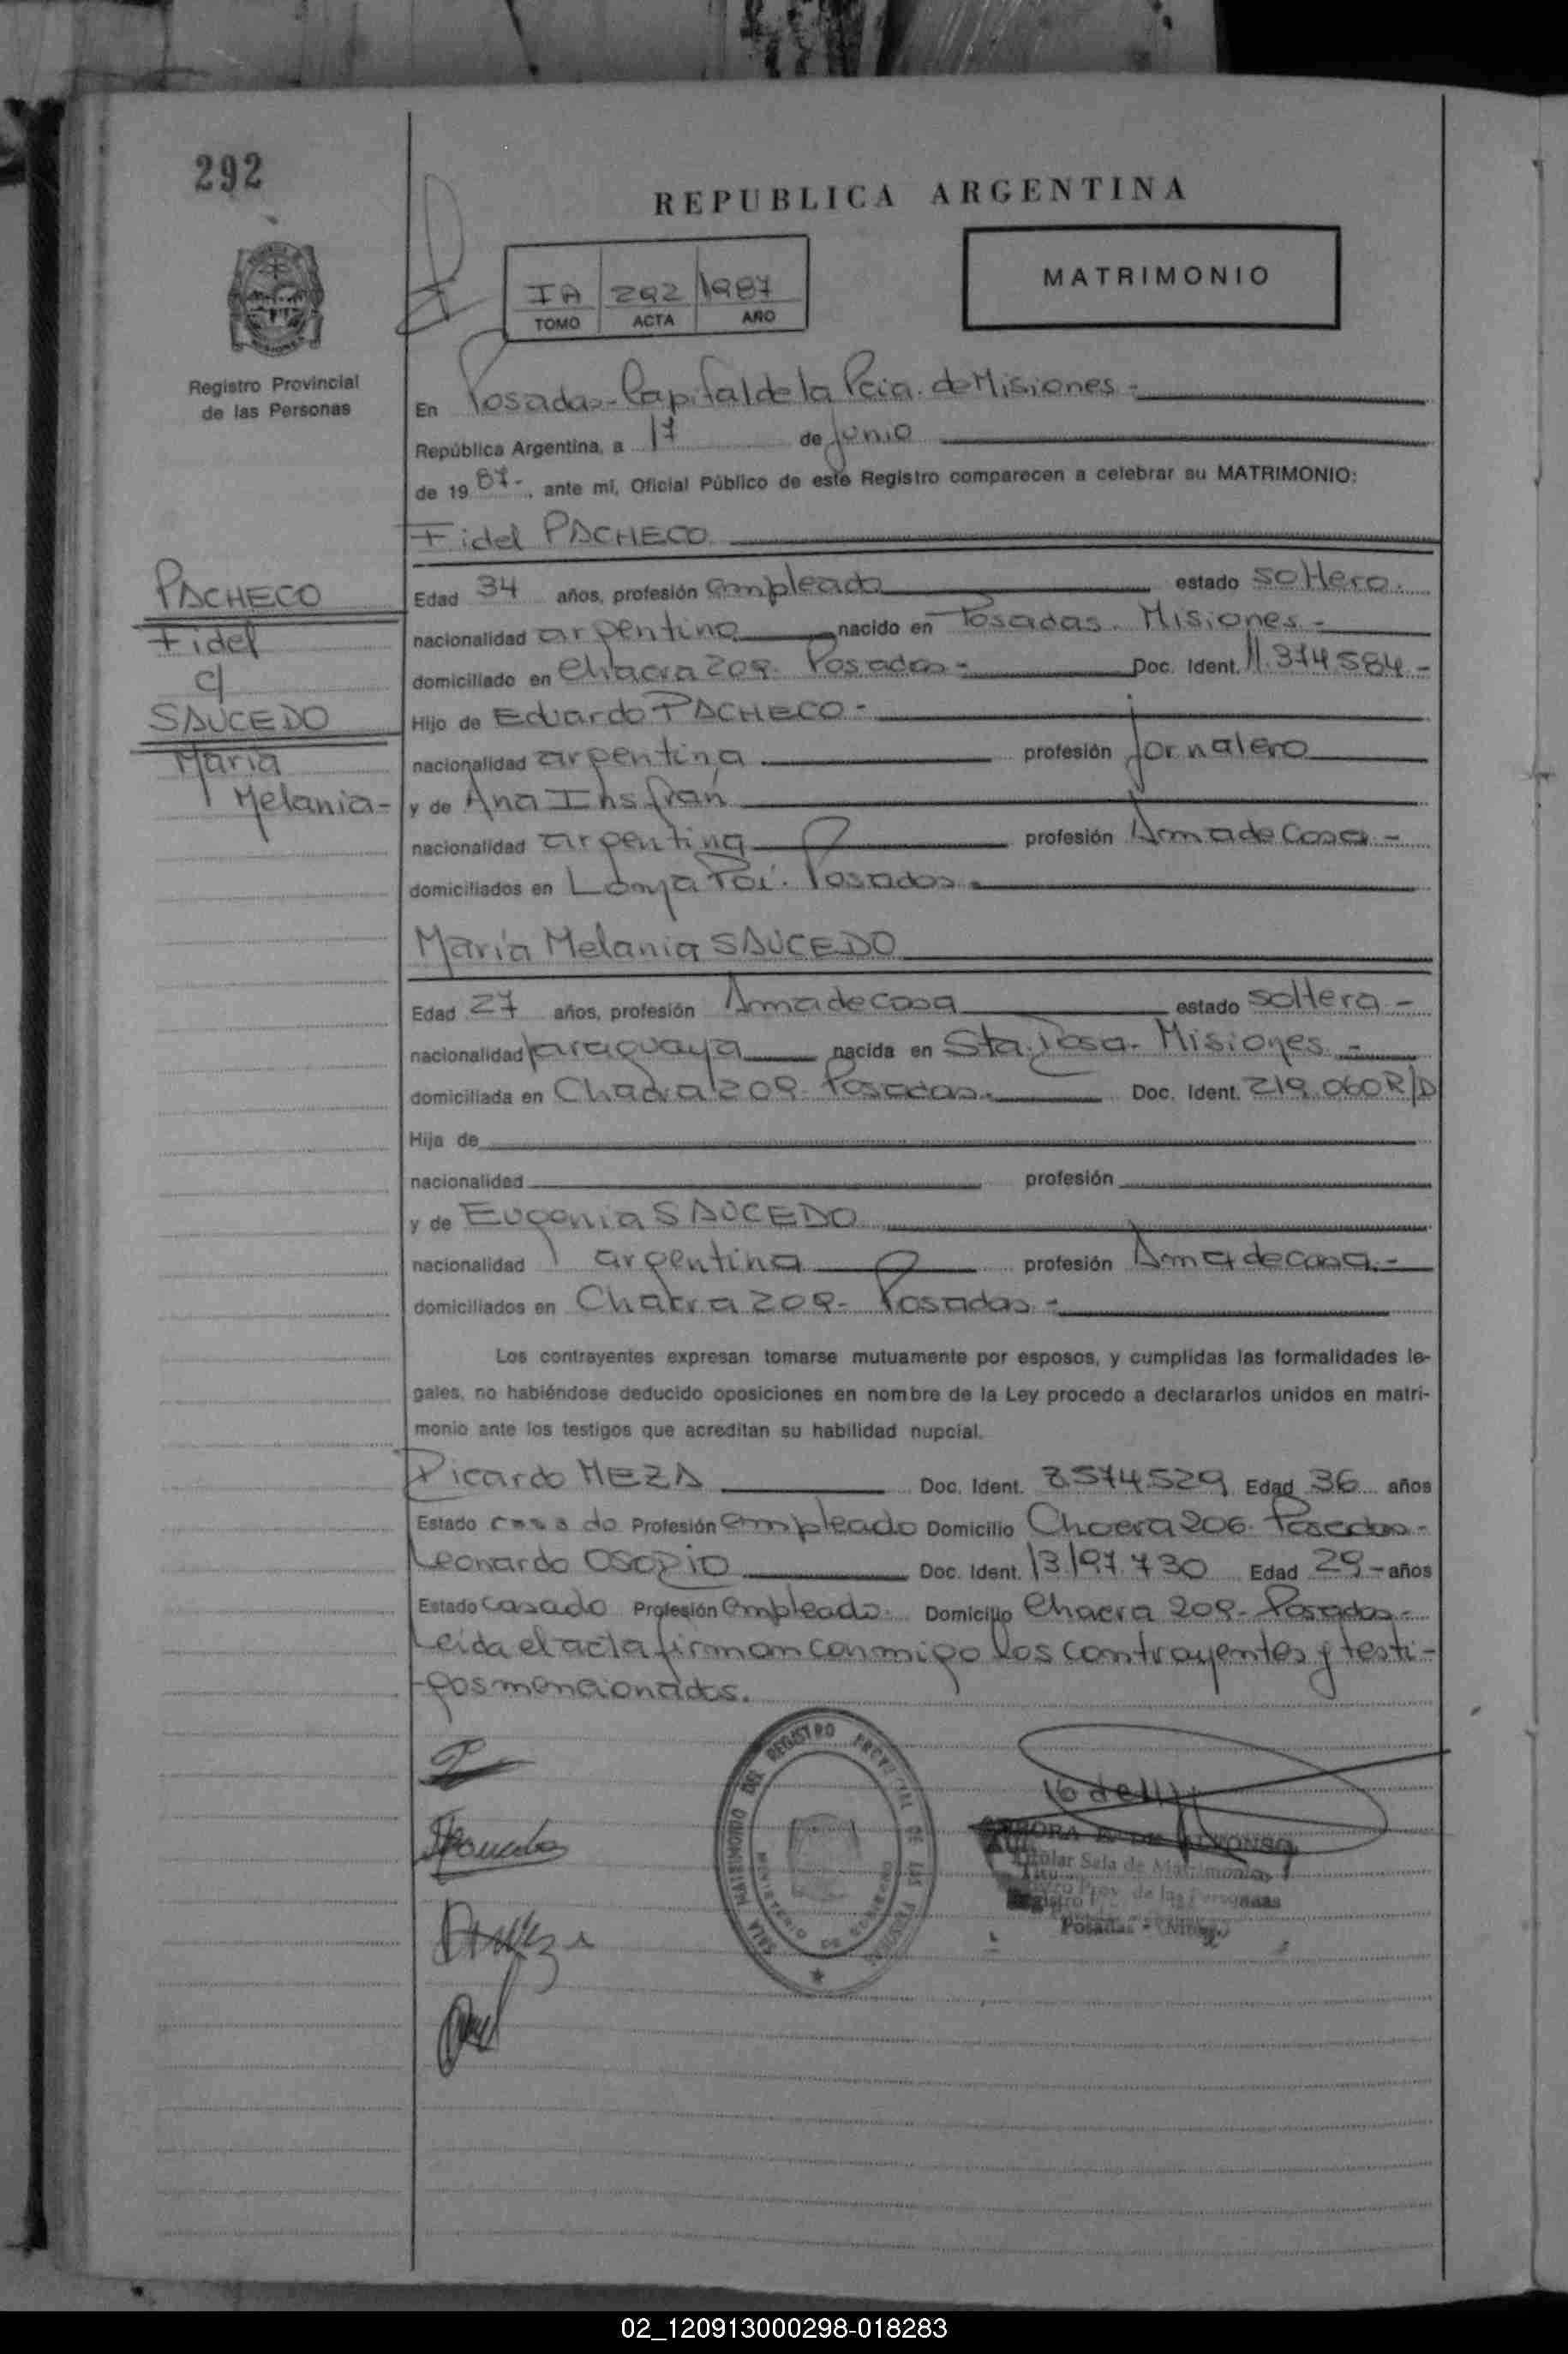 292
REPUBLICA ARGENTINA
IA 292 1987
TOMO ACTA AÑO
MATRIMONIO
Registro Provincial
de las Personas
En Posadas-Capital de la Pcia. de Misiones-
República Argentina, a 17 de Junio
de 19 87-, ante mí, Oficial Público de este Registro comparecen a celebrar su MATRIMONIO:
Fidel PACHECO
PACHECO
Fidel
c/
SAUCEDO
María
Melania-
Edad 34 años, profesión empleado estado soltero.
nacionalidad argentina nacido en Posadas. Misiones-
domiciliado en Chacra 209- Posadas- Doc. Ident. 11.374.584-
Hijo de Eduardo PACHECO-
nacionalidad argentina profesión Jornalero
y de Ana Insfran
nacionalidad argentina profesión Ama de Casa-
domiciliados en Posadas-
María Melania SAUCEDO
Edad 27 años, profesión Ama de casa estado soltera-
nacionalidad paraguaya nacida en Sta. Rosa- Misiones-
domiciliada en Chacra 209- Posadas- Doc. Ident. 219.060 R/D
Hija de
nacionalidad profesión
y de Eugenia SAUCEDO
nacionalidad argentina profesión Ama de casa-
domiciliados en Chacra 209- Posadas-
Los contrayentes expresan tomarse mutuamente por esposos, y cumplidas las formalidades le-
gales, no habiéndose deducido oposiciones en nombre de la Ley procedo a declararlos unidos en matri-
monio ante los testigos que acreditan su habilidad nupcial.
Ricardo MEZA Doc. Ident. 8.574.529 Edad 36 años
Estado casado Profesión empleado Domicilio Chacra 206- Posadas-
Leonardo OSORIO Doc. Ident. 13.197.730 Edad 29- años
Estado casado Profesión empleado Domicilio Chacra 209- Posadas-
Leída el acta firman conmigo los contrayentes y testi-
gos mencionados.
SALA MATRIMONIO DEL REGISTRO PROVINCIAL DE LAS PERSONAS
MINISTERIO DE GOBIERNO
AURORA DE ALFONSO
Titular Sala de Matrimonio
Registro Prov. de las Personas
Posadas - Mnes.
02_120913000298-018283